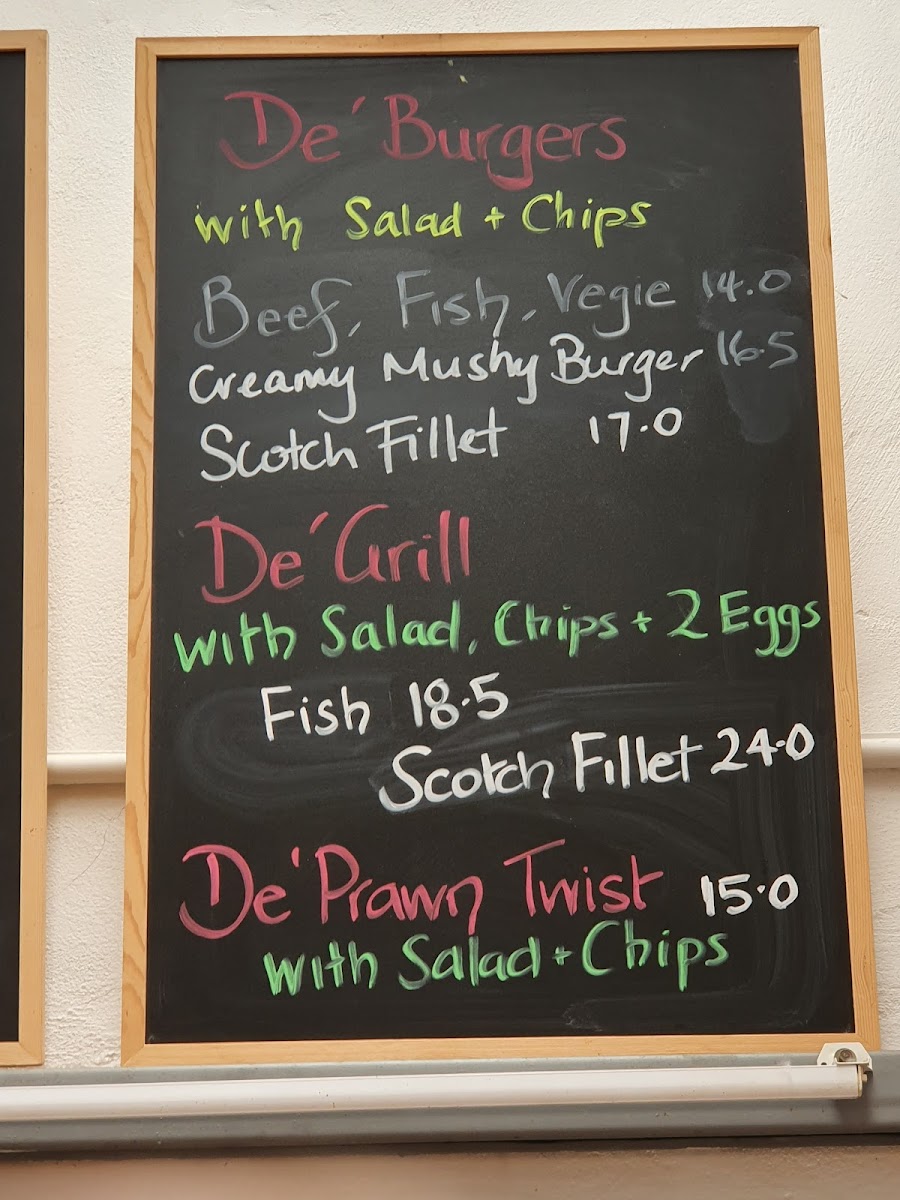 De' Burgers
with Salad + Chips
Beef, Fish, Vegie 14.0
Creamy Mushy Burger 16.5
Scotch Fillet 17.0
De' Grill
with Salad, Chips + 2 Eggs
Fish 18.5
Scotch Fillet 24.0
De' Prawn Twist 15.0
with Salad + Chips